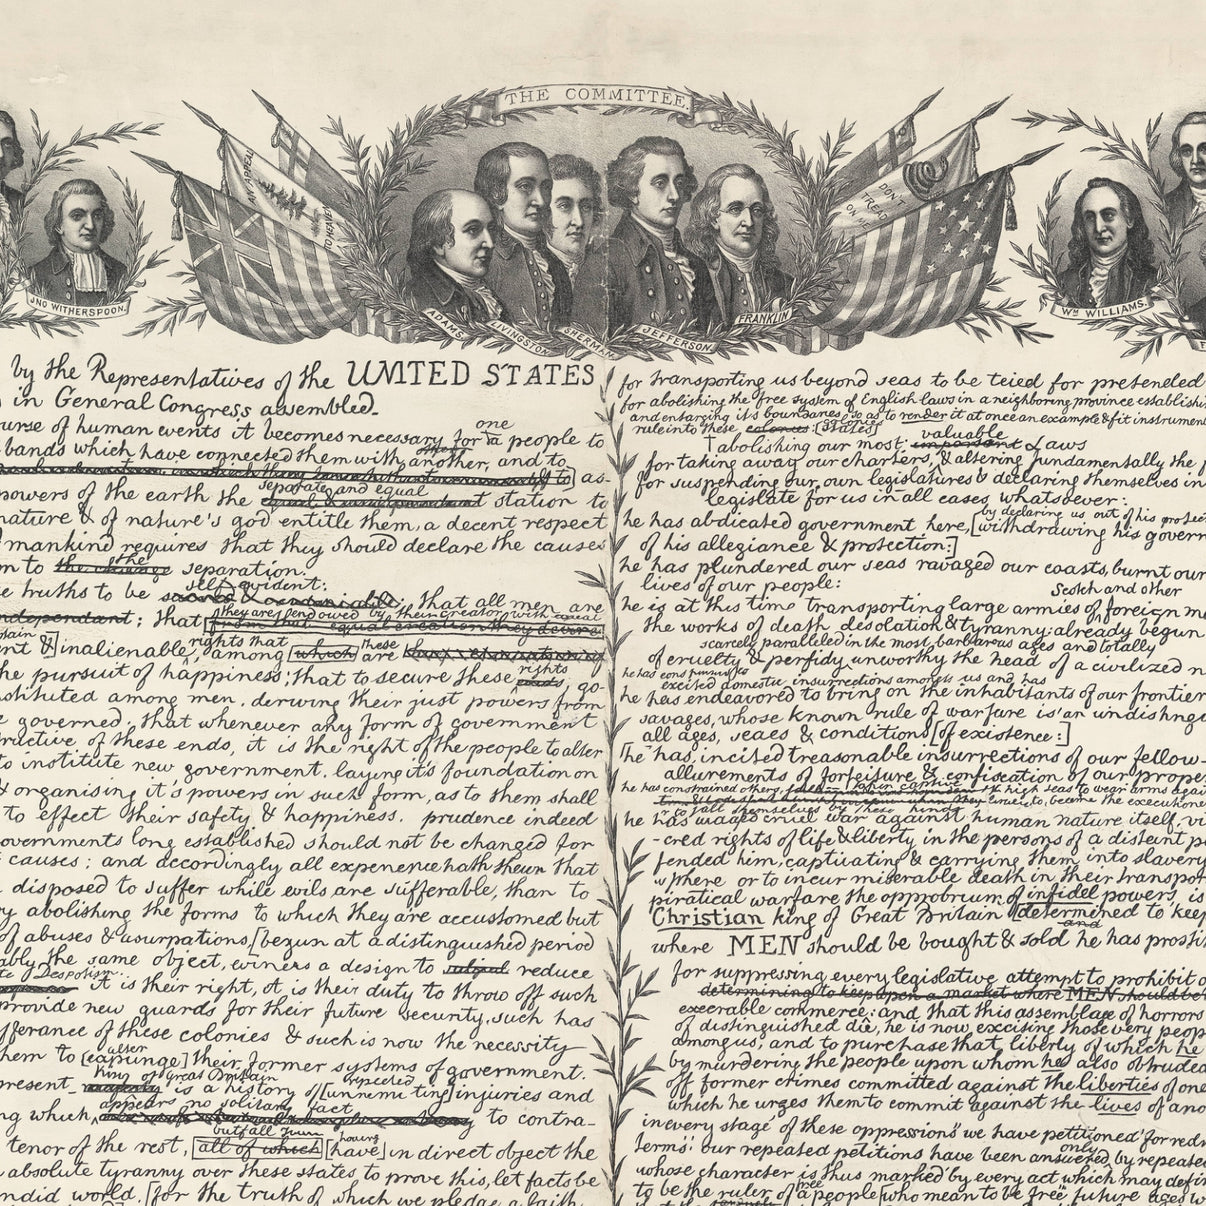 THE COMMITTEE.
AN APPEAL
TO HEAVEN
DON'T
TREAD
ON ME
JNO WITHERSPOON.
ADAMS
LIVINGSTON
SHERMAN
JEFFERSON.
FRANKLIN
Wm WILLIAMS.
by the Representatives of the UNITED STATES
in General Congress assembled.
urse of human events it becomes necessary for a people to
one
bands which have connected them with another, and to
as-
separate and equal
powers of the earth the station to
nature & of nature's god entitle them, a decent respect
mankind requires that they should declare the causes
the
m to the change separation.
self evident:
e truths to be sacred & undeniable; that all men are
they are endowed by their creator with equal
ndependant; that from that equal creation they derive
rights that these
nt &] inalienable, among which are
rights
he pursuit of happiness; that to secure these ends, go-
stituted among men, deriving their just powers from
e governed; that whenever any form of government
ructive of these ends, it is the right of the people to alter
to institute new government, laying it's foundation on
& organising it's powers in such form, as to them shall
to effect their safety & happiness. prudence indeed
overnments long established should not be changed for
causes; and accordingly all experience hath shewn that
disposed to suffer while evils are sufferable, than to
y abolishing the forms to which they are accustomed but
of abuses & usurpations, [begun at a distinguished period
ably the same object, evinces a design to subject reduce
te Despotism it is their right, it is their duty to throw off such
provide new guards for their future security, such has
fferance of these colonies & such is now the necessity
alter
hem to [expunge] their former systems of government.
King of Great Britain repeated
present majesty is a history of [unremitting] injuries and
appears no solitary fact
ng which, to contra-
but all have having
tenor of the rest, all of which [have] in direct object the
absolute tyranny over these states to prove this, let facts be
ndid world, [for the truth of which we pledge a faith
for transporting us beyond seas to be teied for pretended
for abolishing the free system of English laws in a neighboring province establishi
and enlarging it's boundaries so as to render it at once an example & fit instrument
rule into these colonies: [states
valuable
abolishing our most important Laws
for taking away our charters, & altering fundamentally the
for suspending our own legislatures & declaring themselves in
legislate for us in all cases whatsoever:
by declaring us out of his protec
he has abdicated government here, [withdrawing his govern
of his allegiance & protection:]
he has plundered our seas ravaged our coasts, burnt our
lives of our people:
Scotch and other
he is at this time transporting large armies of foreign me
the works of death desolation & tyranny already begun
scarcely paralleled in the most barbarous ages and totally
of cruelty & perfidy unworthy the head of a civilized n
excited domestic insurrections amongst us and has
he has endeavored to bring on the inhabitants of our frontier
savages, whose known rule of warfare is an undishingu
all ages, sexes & conditions [of existence:]
[he has incited treasonable insurrections of our fellow-
allurements of forfeiture & confiscation of our proper
he has constrained others, high seas to wear arms again
become the executione
he has waged cruel war against human nature itself, vi
-cred rights of life & liberty in the persons of a distant p
fended him, captivating & carrying them into slavery
sphere or to incur miserable death in their transport
piratical warfare the opprobrium of infidel powers, is
Christian king of Great Britain [determined to keep
and
where MEN should be bought & sold he has prosti
for suppressing every legislative attempt to prohibit o
determining to keep open a market where MEN should be
execrable commerce; and that this assemblage of horrors
of distinguished die, he is now exciting those very peop
among us, and to purchase that liberty of which he
by murdering the people upon whom he also obtruded
off former crimes committed against the liberties of one
which he urges them to commit against the lives of ano
in every stage of these oppressions we have petitioned for redr
only
terms; our repeated petitions have been answered by repeate
whose character is thus marked by every act which may defin
free
to be the ruler of a people [who mean to be free future ages w